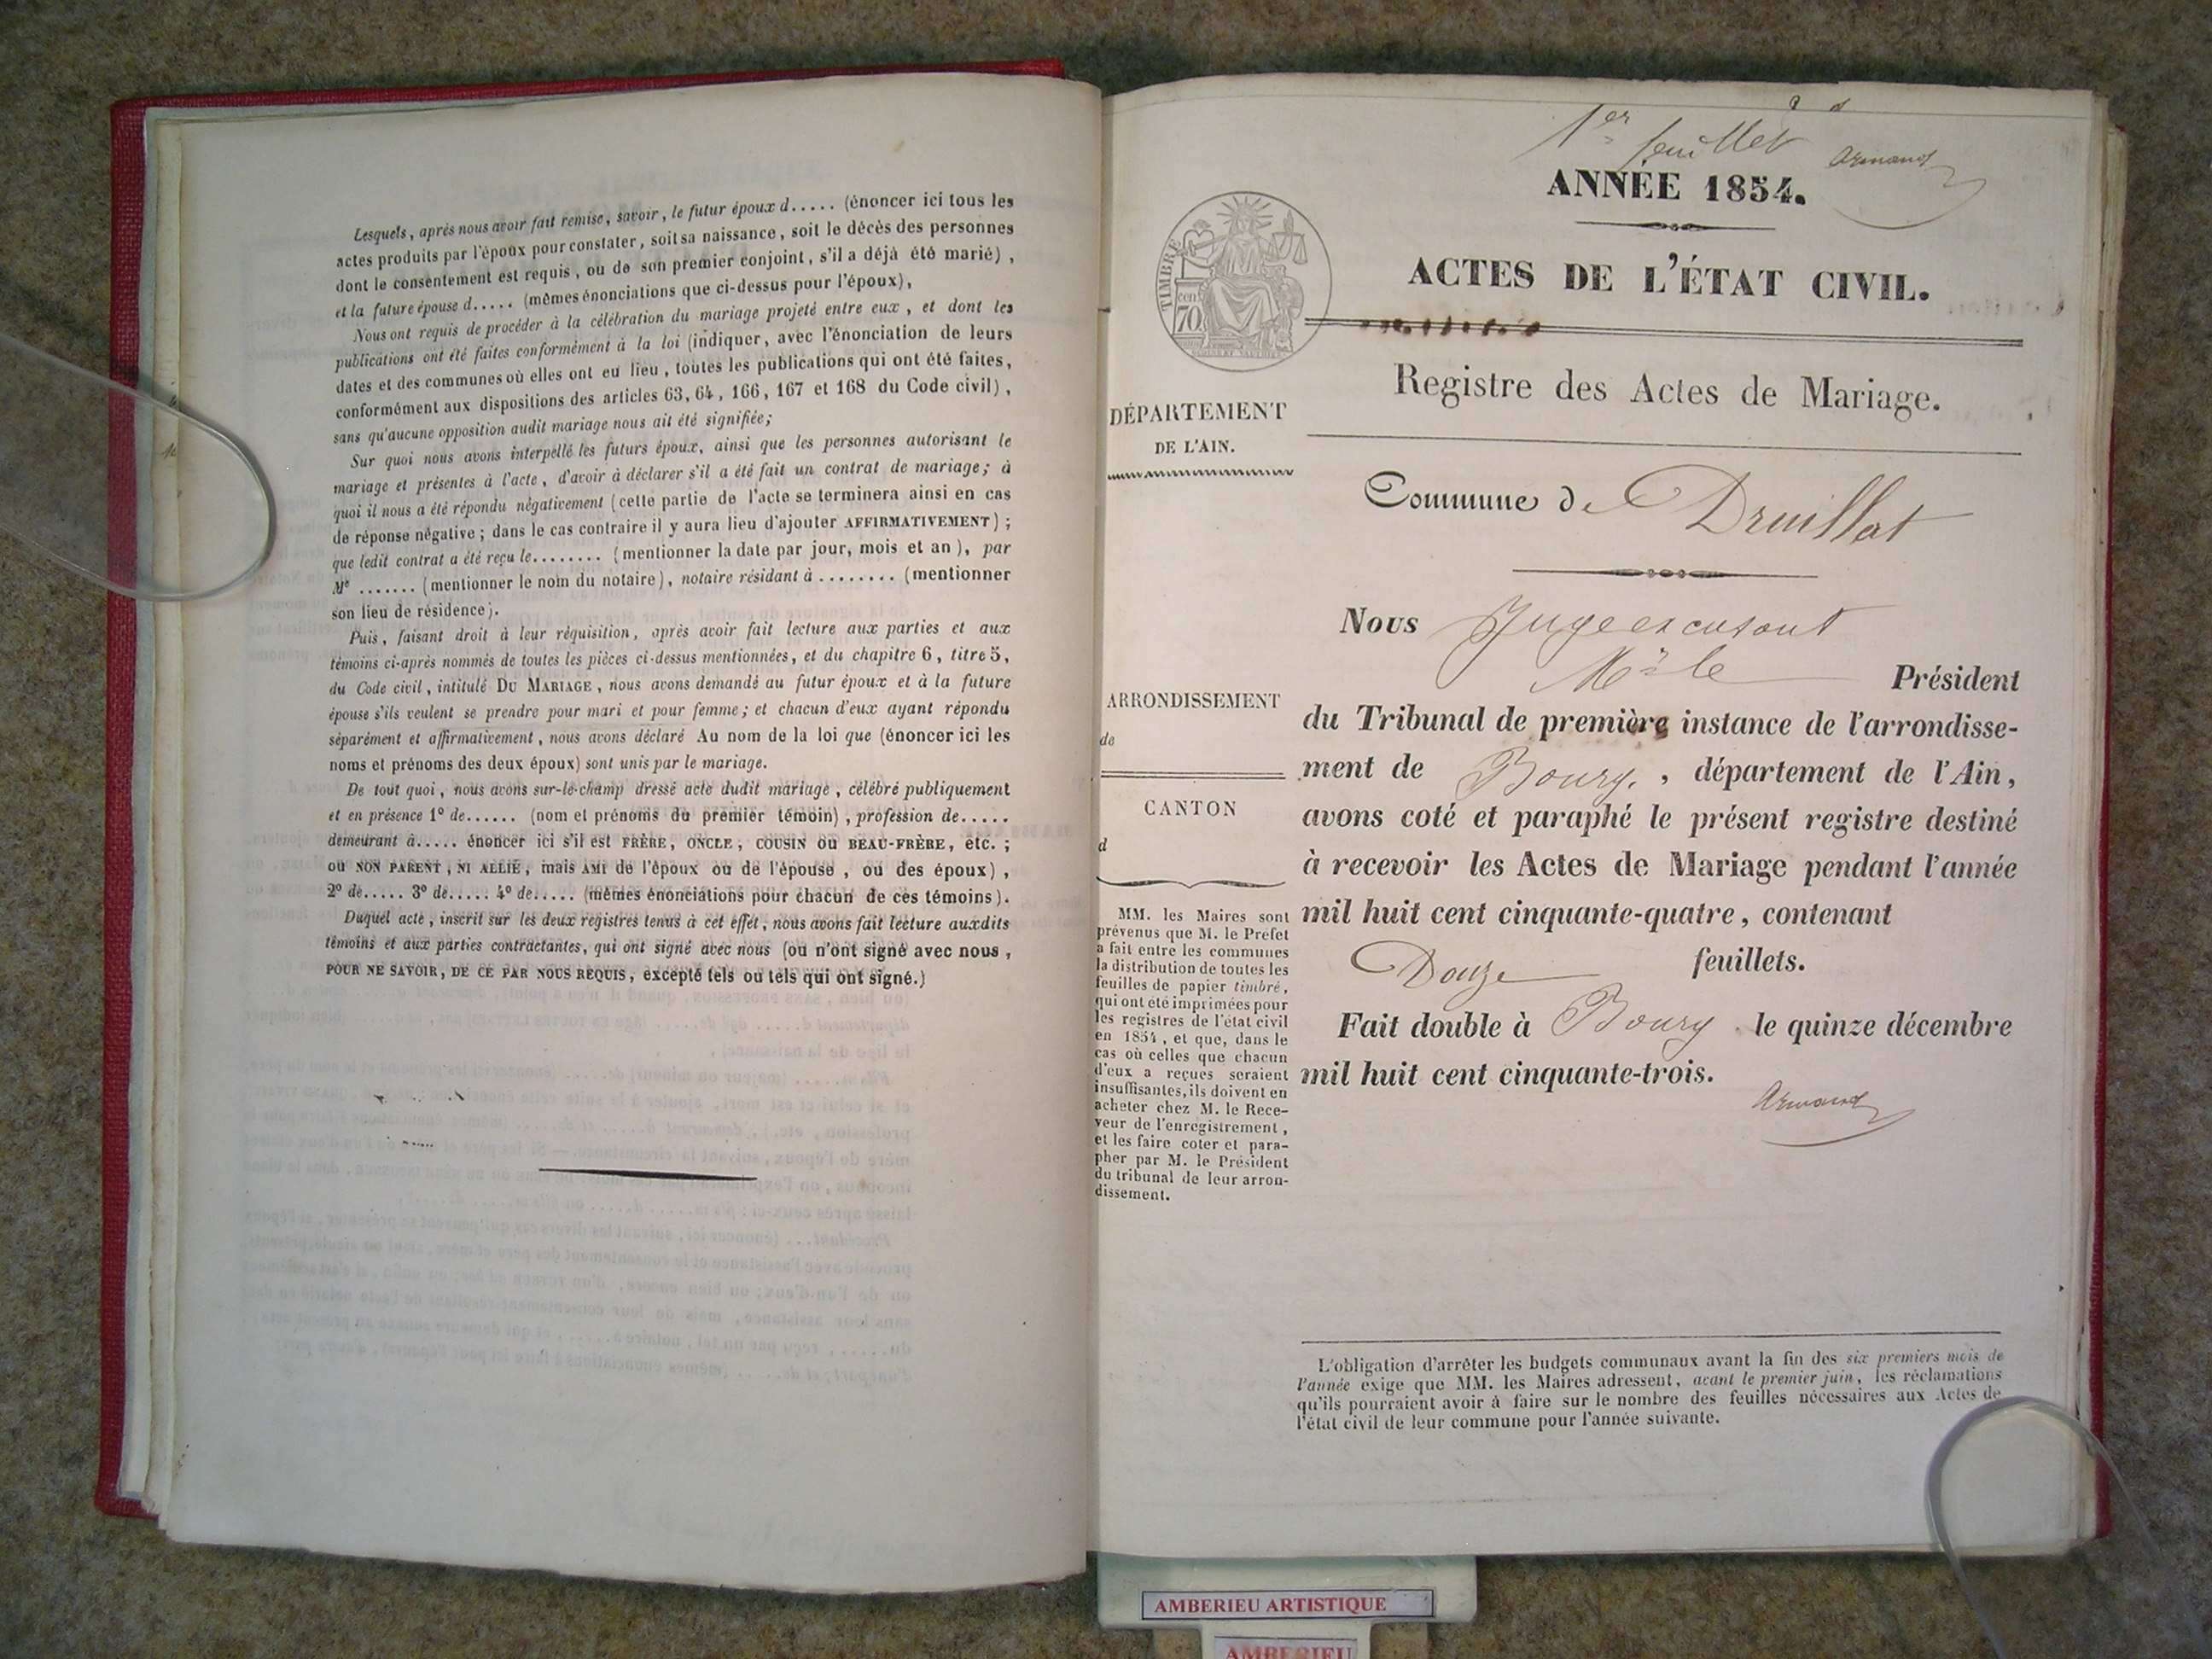 Lesquels, après nous avoir fait remise, savoir, le futur époux d..... (énoncer ici tous les
actes produits par l'époux pour constater, soit sa naissance, soit le décès des personnes
dont le consentement est requis, ou de son premier conjoint, s'il a déjà été marié),
et la future épouse d..... (mêmes énonciations que ci-dessus pour l'époux),
Nous ont requis de procéder à la célébration du mariage projeté entre eux, et dont les
publications ont été faites conformément à la loi (indiquer, avec l'énonciation de leurs
dates et des communes où elles ont eu lieu, toutes les publications qui ont été faites,
conformément aux dispositions des articles 63, 64, 166, 167 et 168 du Code civil),
sans qu'aucune opposition audit mariage nous ait été signifiée;
Sur quoi nous avons interpellé les futurs époux, ainsi que les personnes autorisant le
mariage et présentes à l'acte, d'avoir à déclarer s'il a été fait un contrat de mariage; à
quoi il nous a été répondu négativement (cette partie de l'acte se terminera ainsi en cas
de réponse négative; dans le cas contraire il y aura lieu d'ajouter AFFIRMATIVEMENT);
que ledit contrat a été reçu le........ (mentionner la date par jour, mois et an), par
Me ....... (mentionner le nom du notaire), notaire résidant à ........ (mentionner
son lieu de résidence).
Puis, faisant droit à leur réquisition, après avoir fait lecture aux parties et aux
témoins ci-après nommés de toutes les pièces ci-dessus mentionnées, et du chapitre 6, titre 5,
du Code civil, intitulé DU MARIAGE, nous avons demandé au futur époux et à la future
épouse s'ils veulent se prendre pour mari et pour femme; et chacun d'eux ayant répondu
séparément et affirmativement, nous avons déclaré Au nom de la loi que (énoncer ici les
noms et prénoms des deux époux) sont unis par le mariage.
De tout quoi, nous avons sur-le-champ dressé acte dudit mariage, célébré publiquement
et en présence 1° de...... (nom et prénoms du premier témoin), profession de.....
demeurant à..... énoncer ici s'il est FRÈRE, ONCLE, COUSIN OU BEAU-FRÈRE, etc.;
ou NON PARENT, NI ALLIÉ, mais AMI de l'époux ou de l'épouse, ou des époux),
2° de..... 3° de..... 4° de..... (mêmes énonciations pour chacun de ces témoins).
Duquel acte, inscrit sur les deux registres tenus à cet effet, nous avons fait lecture auxdits
témoins et aux parties contractantes, qui ont signé avec nous (ou n'ont signé avec nous,
POUR NE SAVOIR, DE CE PAR NOUS REQUIS, excepté tels ou tels qui ont signé.)
1er feuillet
Armand
ANNÉE 1854.
ACTES DE L'ÉTAT CIVIL.
TIMBRE
cen.
70
Registre des Actes de Mariage.
DÉPARTEMENT
DE L'AIN.
Commune de Druillat
Nous Juge excusant
Mr le Président
ARRONDISSEMENT
de
CANTON
d
du Tribunal de première instance de l'arrondisse-
ment de Bourg, département de l'Ain,
avons coté et paraphé le présent registre destiné
à recevoir les Actes de Mariage pendant l'année
mil huit cent cinquante-quatre, contenant
Douze feuillets.
Fait double à Bourg le quinze décembre
mil huit cent cinquante-trois.
Armand
MM. les Maires sont
prévenus que M. le Préfet
a fait entre les communes
la distribution de toutes les
feuilles de papier timbré,
qui ont été imprimées pour
les registres de l'état civil
en 1854, et que, dans le
cas où celles que chacun
d'eux a reçues seraient
insuffisantes, ils doivent en
acheter chez M. le Rece-
veur de l'enregistrement,
et les faire coter et para-
pher par M. le Président
du tribunal de leur arron-
dissement.
L'obligation d'arrêter les budgets communaux avant la fin des six premiers mois de
l'année exige que MM. les Maires adressent, avant le premier juin, les réclamations
qu'ils pourraient avoir à faire sur le nombre des feuilles nécessaires aux Actes de
l'état civil de leur commune pour l'année suivante.
AMBERIEU ARTISTIQUE
AMBERIEU